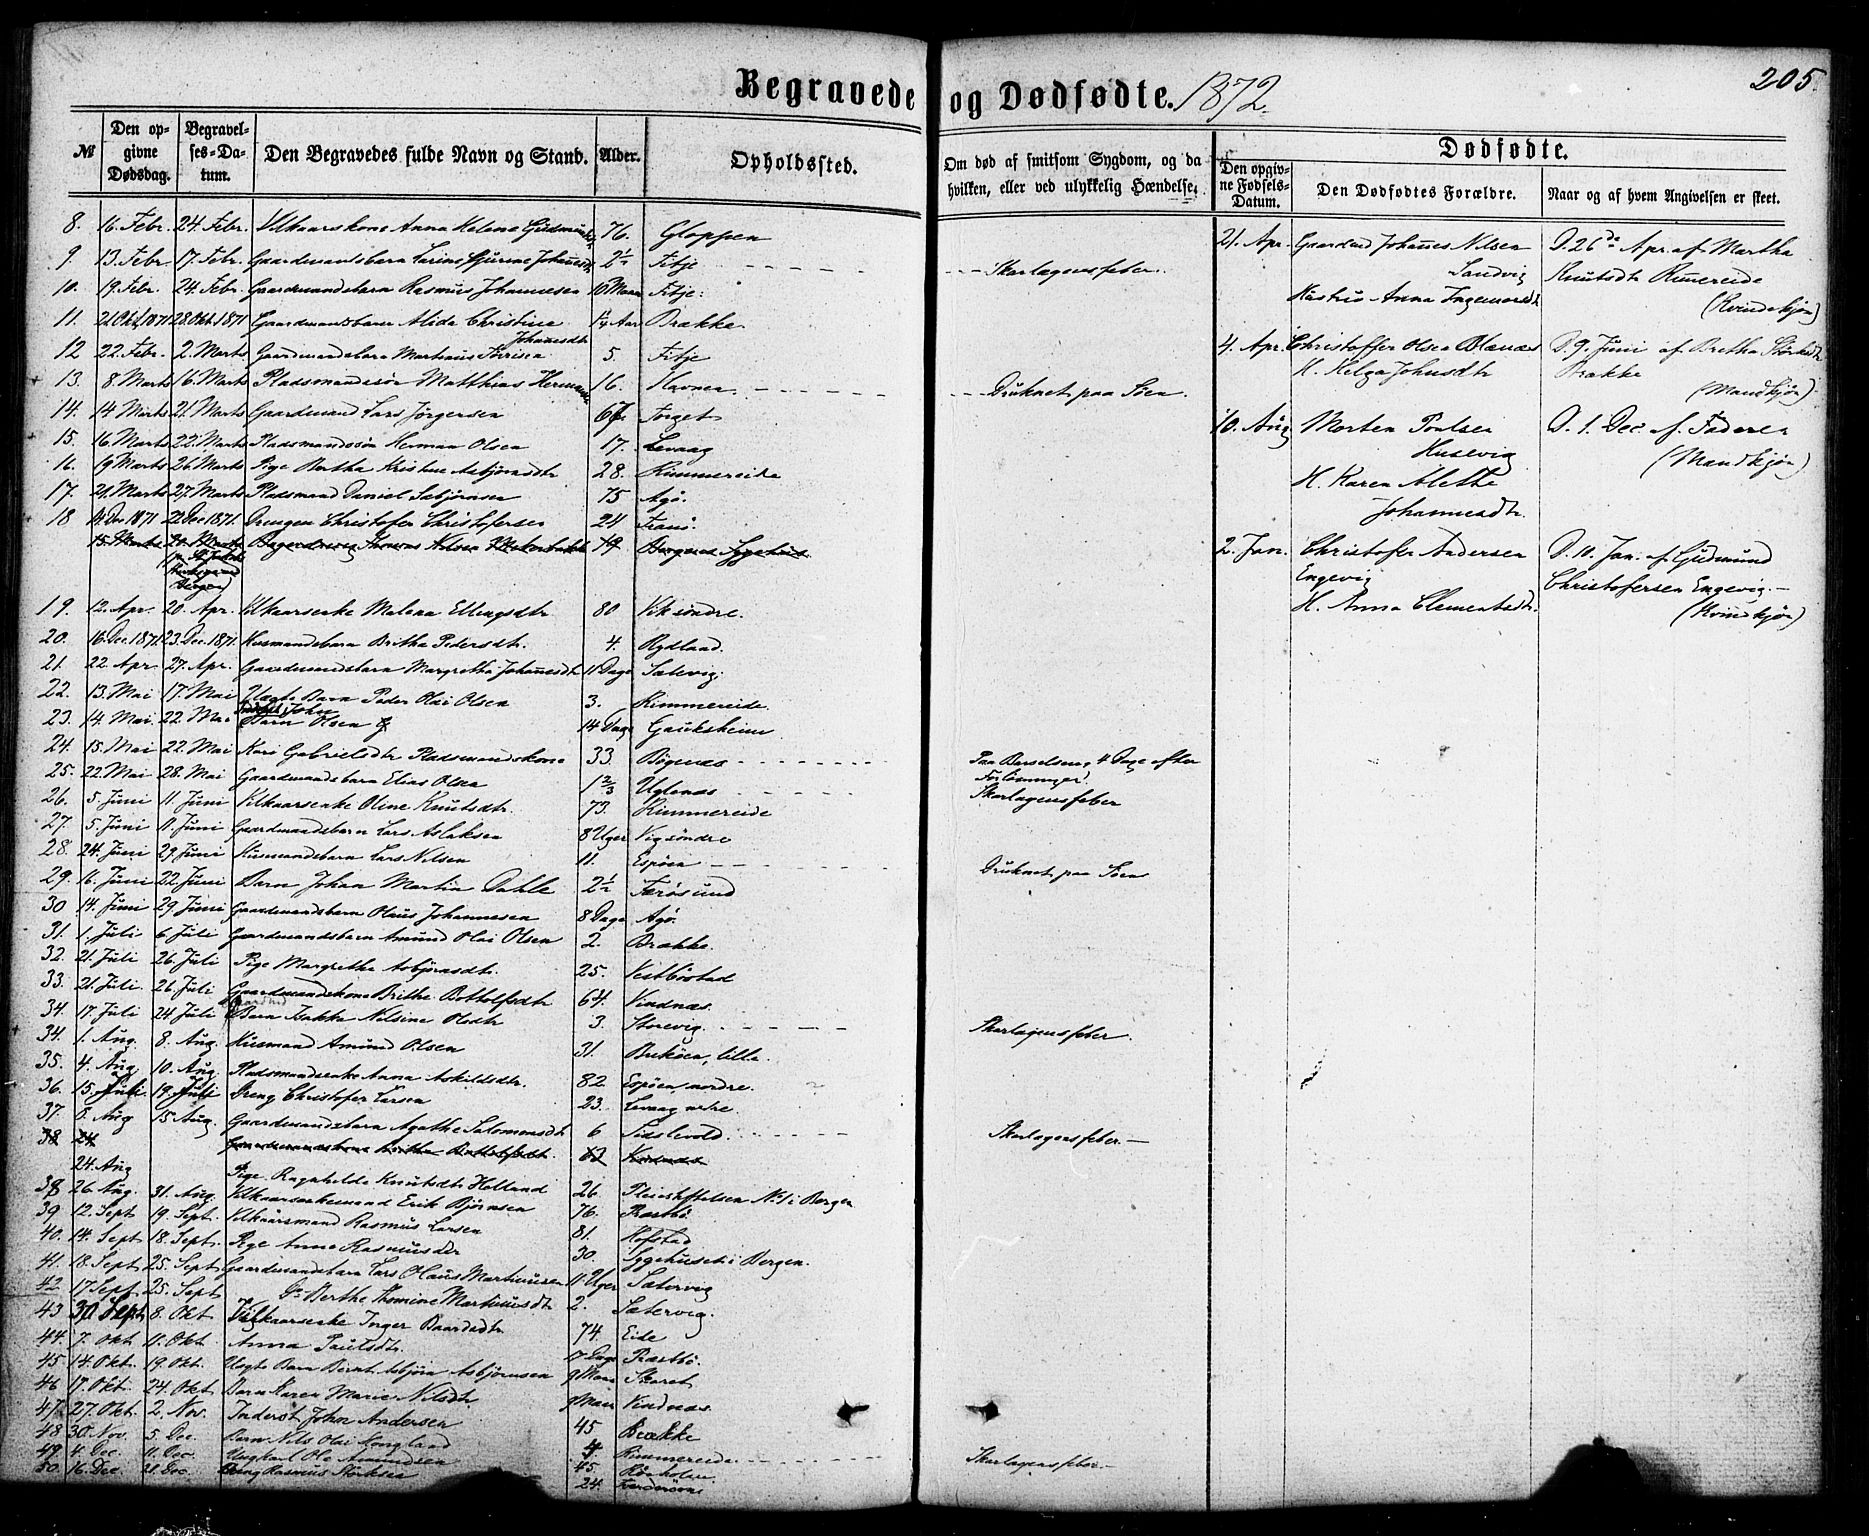 Begravede og Dødfødte. 1872.
205.
№
Den opgivne Dødsdag.
Begravelses-Datum.
Den Begravedes fulde Navn og Stand.
Alder.
Opholdssted.
Om død af smitsom Sygdom, og da hvilken, eller ved ulykkelig Hændelse.
Dødfødte.
Den opgivne Fødsels-Datum.
Den Dødfødtes Forældre.
Naar og af hvem Angivelsen er skeet.
8. 16. Febr. 24. Febr. Vilkaarskone Anna Helena 76. Gloppen
9 13. Febr. 17. Febr. Gaardmandsbarn 2½ Fitje Skarlagensfeber.
10. 19. Febr. 24. Febr. Gaardmandsbarn Rasmus Johannesen 10 Maan Fitje.
11. 21 Okt. 1871 28. Okt. 1871 Gaardmandsbarn Alida Christine Johannesdtr 1¼ Aar Brække.
12 22. Febr. 2. Marts Gaardmandsbarn 5. Fitje
13. 8. Marts 16. Marts Pladsmandssøn Matthias 16. Havnen Druknet paa Søen.
14. 14 Marts 21. Marts Gaardmand Lars Jørgensen 67 
15. 16. Marts 22. Marts Pladsmandssøn Herman Olsen 17. Levaag
16. 19 Marts 26. Marts Pige Bertha Kristine Asbjørnsdtr 28. Rimmereide
17. 21. Marts 27. Marts Pladsmand Daniel 75 Agø.
18 14. Dec 1871 22 Dec 1871. Drengen Christofer Christofersen 24 
15. Marts Thomas Nilsen 49 Bergens Sygehuus
19. 12. Apr. 20. Apr. Vilkaarsenke Malena Ellingsdtr 80 Vik søndre.
20. 16. Dec. 1871 23. Dec. 1871. Husmandsbarn Britha Pedersdtr. 4. Rydland.
21. 22. Apr. 27. Apr. Gaardmandsbarn Margretha Johannesdtr 11 Dage Sælevig.
22. 13. Mai 17. Mai Uægte Barn Peder Olai Olsen 3. Rimmereide.
23. 14. Mai. 22. Mai Barn Olsen 14 Dage Gauksheim
24. 15. Mai 22. Mai Kari Gabrielsdtr Pladsmandskone 33. Bøgenæs Paa Barselseng 4 Dage efter
25. 22. Mai 28. Mai Gaardmandsbarn Elias Olsen 1⅔ Uglenæs Skarlagensfeber
26. 5. Juni 11. Juni Vilkaarsenke Oline Knutsdtr. 73. Rimmereide
27. 5. Juni 11. Juni Gaardmandsbarn Lars Aslaksen 8 Uger Vig søndre
28. 24. Juni 29. Juni Husmandsbarn Lars Nilsen 11. Espøen Druknet paa Søen
29. 16. Juni 22. Juni Barn Johan Martin Dahle 2½ Færøsund
30 14. Juni 29. Juni Gaardmandsbarn Olaus Johannesen 8 Dage Agø.
31. 1. Juli 6. Juli Gaardmandsbarn Amund Olai Olsen 2. Brække.
32. 21. Juli 26. Juli Pige Margretha Asbjørnsdtr. 25. Vestbøstad
33. 21. Juli. 26. Juli Gaardmandskone Brithe Bottolfsdtr 64. Vindnæs.
34. 17. Juli 24 Juli Barn Nilsine Olsdtr 3. Storevig. Skarlagensfeber.
34. 1. Aug. 8. Aug. Husmand Amund Olsen 31. Buskøen, lille.
35. 4. Aug. 10. Aug. Pladsmandsenke Anna Askildsdtr. 82 Espøen, nordre.
36. 15. Juli. 19. Juli Dreng Christofer Larsen 23. Levaag
37. 8. Aug 15 Aug. Gaardmandsbarn Agathe Salomonsdtr 6 Sidslevold. Skarlagensfeber.
38 24 Gaardmandskone Brithe Bottolfsdtr. Vindnæs
24. Aug Pige Ragnhilde Knutsdtr Helland 26. Pleiestiftelsen No. 1 i Bergen
38. 26. Aug. 31. Aug. Erik Bjørnsen 76.
39 12. Sept 19. Sept. Vilkaarsmand Rasmus Larsen 81. Hopstad
40. 14. Sept. 18. Sept. Pige Anna Rasmusdtr 30 Sygehuset i Bergen.
41. 18. Sept 25. Sept Gaardmandsbarn Lars Olaus Martinusen 11 Uger Sætervig
42 17 Sept. 25. Sept Do. Berthe Thomine Martinusdtr 2. Sætervig.
43 30 Sept 8. Okt Vilkaarsenke Inger Baardsdtr 74. Eide
44. 7. Okt 11. Okt. Anna Paulsdtr.
45 14. Okt. 19. Okt. Uægte Barn Asbjørn Asbjørnsen 9 Maan Skaret
46 17. Okt. 24. Okt Barn Karen Marie Nilsdtr Vindnæs.
47 27. Okt. 2. Nov. Inderst John Andersen 45 Brække
48 30. Nov. 5. Dec. Barn Nils Olai 4 Rimmereide Skarlagensfeber.
49 4. Dec. 11. Dec. Ungkarl Ole Amundsen 45.
50. 16. Dec 21. Dec. Rasmus 24.
21. Apr. Johannes Nilsen Sandvig
Hustru Anna Ingemarsdtr
D. 26de Apr. af Martha Knutsdtr Rimereide
(Kvindekjøn)
4. Apr. Christoffer Olsen
H. Helga Johnsdtr
D. 9. Juni af Bretha Brække
(Mandkjøn)
10. Aug Morten Poulsen Husevig
H. Karen Alethe Johannesdtr.
D. 1. Dec. af Faderen
(Mandkjøn)
2. Jan. Christofer Andersen Engevig
H. Anna Clementsdtr.
D. 10. Jan. af Gudmund Christofersen Engevig.
(Kvindkjøn)